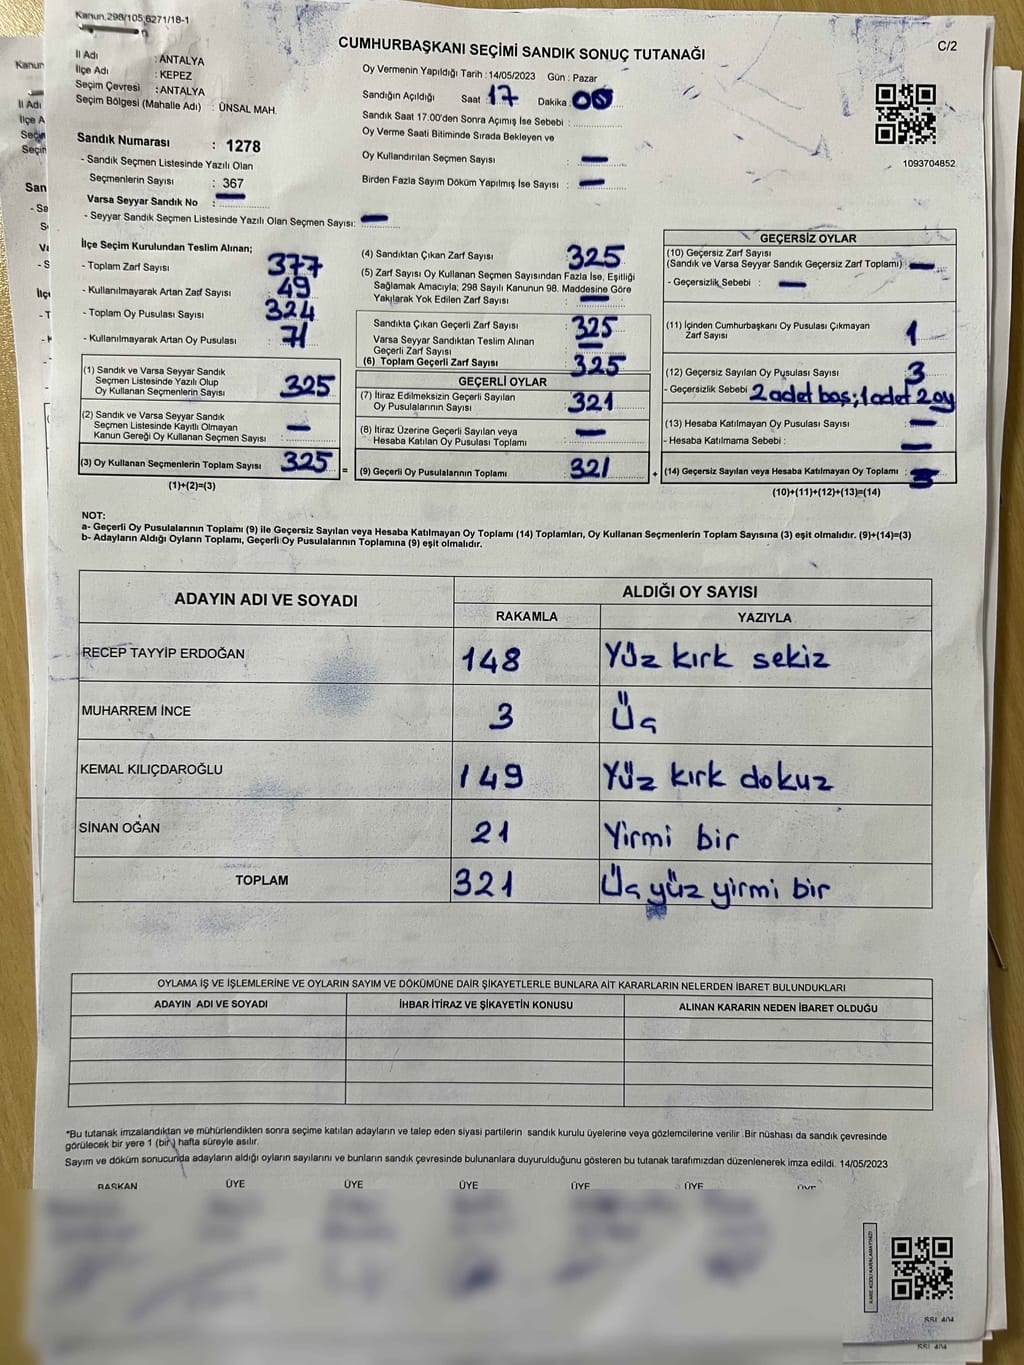 Kanun.298/105,6271/18-1
C/2
CUMHURBAŞKANI SEÇİMİ SANDIK SONUÇ TUTANAĞI
İl Adı : ANTALYA
İlçe Adı : KEPEZ
Seçim Çevresi : ANTALYA
Seçim Bölgesi (Mahalle Adı) : ÜNSAL MAH.
Oy Vermenin Yapıldığı Tarih : 14/05/2023 Gün : Pazar
Sandığın Açıldığı Saat : 17 Dakika : 00
Sandık Saat 17:00'den Sonra Açılmış İse Sebebi :
Oy Verme Saati Bitiminde Sırada Bekleyen ve
Oy Kullandırılan Seçmen Sayısı : —
Birden Fazla Sayım Döküm Yapılmış İse Sayısı : —
1093704852
Sandık Numarası : 1278
- Sandık Seçmen Listesinde Yazılı Olan
Seçmenlerin Sayısı : 367
Varsa Seyyar Sandık No : —
- Seyyar Sandık Seçmen Listesinde Yazılı Olan Seçmen Sayısı: —
İlçe Seçim Kurulundan Teslim Alınan;
- Toplam Zarf Sayısı 377
- Kullanılmayarak Artan Zarf Sayısı 49
- Toplam Oy Pusulası Sayısı 324
- Kullanılmayarak Artan Oy Pusulası 71
(1) Sandık ve Varsa Seyyar Sandık
Seçmen Listesinde Yazılı Olup
Oy Kullanan Seçmenlerin Sayısı 325
(2) Sandık ve Varsa Seyyar Sandık
Seçmen Listesinde Kayıtlı Olmayan
Kanun Gereği Oy Kullanan Seçmen Sayısı : —
(3) Oy Kullanan Seçmenlerin Toplam Sayısı 325 =
(1)+(2)=(3)
(4) Sandıktan Çıkan Zarf Sayısı 325
(5) Zarf Sayısı Oy Kullanan Seçmen Sayısından Fazla İse, Eşitliği
Sağlamak Amacıyla; 298 Sayılı Kanunun 98. Maddesine Göre
Yakılarak Yok Edilen Zarf Sayısı : —
Sandıkta Çıkan Geçerli Zarf Sayısı 325
Varsa Seyyar Sandıktan Teslim Alınan
Geçerli Zarf Sayısı —
(6) Toplam Geçerli Zarf Sayısı 325
GEÇERLİ OYLAR
(7) İtiraz Edilmeksizin Geçerli Sayılan
Oy Pusulalarının Sayısı : 321
(8) İtiraz Üzerine Geçerli Sayılan veya
Hesaba Katılan Oy Pusulası Toplamı : —
(9) Geçerli Oy Pusulalarının Toplamı : 321 +
GEÇERSİZ OYLAR
(10) Geçersiz Zarf Sayısı
(Sandık ve Varsa Seyyar Sandık Geçersiz Zarf Toplamı) —
- Geçersizlik Sebebi : —
(11) İçinden Cumhurbaşkanı Oy Pusulası Çıkmayan
Zarf Sayısı 1
(12) Geçersiz Sayılan Oy Pusulası Sayısı 3
- Geçersizlik Sebebi 2 adet boş; 1 adet 2 oy
(13) Hesaba Katılmayan Oy Pusulası Sayısı : —
- Hesaba Katılmama Sebebi : —
(14) Geçersiz Sayılan veya Hesaba Katılmayan Oy Toplamı :
(10)+(11)+(12)+(13)=(14)
NOT:
a- Geçerli Oy Pusulalarının Toplamı (9) ile Geçersiz Sayılan veya Hesaba Katılmayan Oy Toplamı (14) Toplamları, Oy Kullanan Seçmenlerin Toplam Sayısına (3) eşit olmalıdır. (9)+(14)=(3)
b- Adayların Aldığı Oyların Toplamı, Geçerli Oy Pusulalarının Toplamına (9) eşit olmalıdır.
ADAYIN ADI VE SOYADI ALDIĞI OY SAYISI
RAKAMLA YAZIYLA
RECEP TAYYİP ERDOĞAN 148 Yüz kırk sekiz
MUHARREM İNCE 3 Üç
KEMAL KILIÇDAROĞLU 149 Yüz kırk dokuz
SİNAN OĞAN 21 Yirmi bir
TOPLAM 321 Üç yüz yirmi bir
OYLAMA İŞ VE İŞLEMLERİNE VE OYLARIN SAYIM VE DÖKÜMÜNE DAİR ŞİKAYETLERLE BUNLARA AİT KARARLARIN NELERDEN İBARET BULUNDUKLARI
ADAYIN ADI VE SOYADI İHBAR İTİRAZ VE ŞİKAYETİN KONUSU ALINAN KARARIN NEDEN İBARET OLDUĞU
*Bu tutanak imzalandıktan ve mühürlendikten sonra seçime katılan adayların ve talep eden siyasi partilerin sandık kurulu üyelerine veya gözlemcilerine verilir .Bir nüshası da sandık çevresinde
görülecek bir yere 1 (bir ) hafta süreyle asılır.
Sayım ve döküm sonucunda adayların aldığı oyların sayılarını ve bunların sandık çevresinde bulunanlara duyurulduğunu gösteren bu tutanak tarafımızdan düzenlenerek imza edildi. 14/05/2023
BAŞKAN ÜYE ÜYE ÜYE ÜYE ÜYE ÜYE